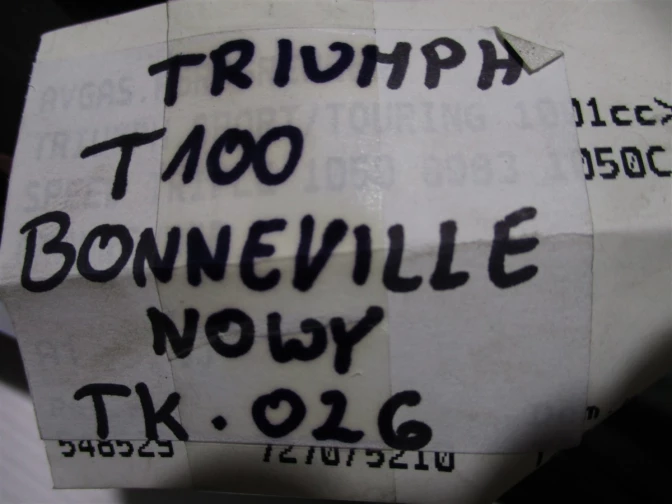 TRIUMPH
T100
BONNEVILLE
NOWY
TK.026
AVGAS.
TRIUMPH SPORT/TOURING 1001cc>
SPEED TRIPLE 1050 0083 1050C
548529 727075210